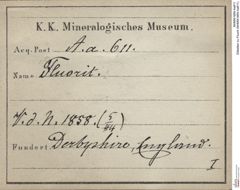 K. K. Mineralogisches Museum.
Acq. Post A. a. 611.
Name Fluorit.
V. d. N. 1858. (5/24)
Fundort Derbyshire, England.
I